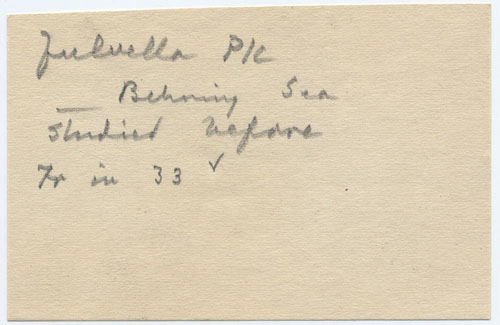 Fulvella Pk
— Behring Sea
Studied before
Fr in 33 ✓